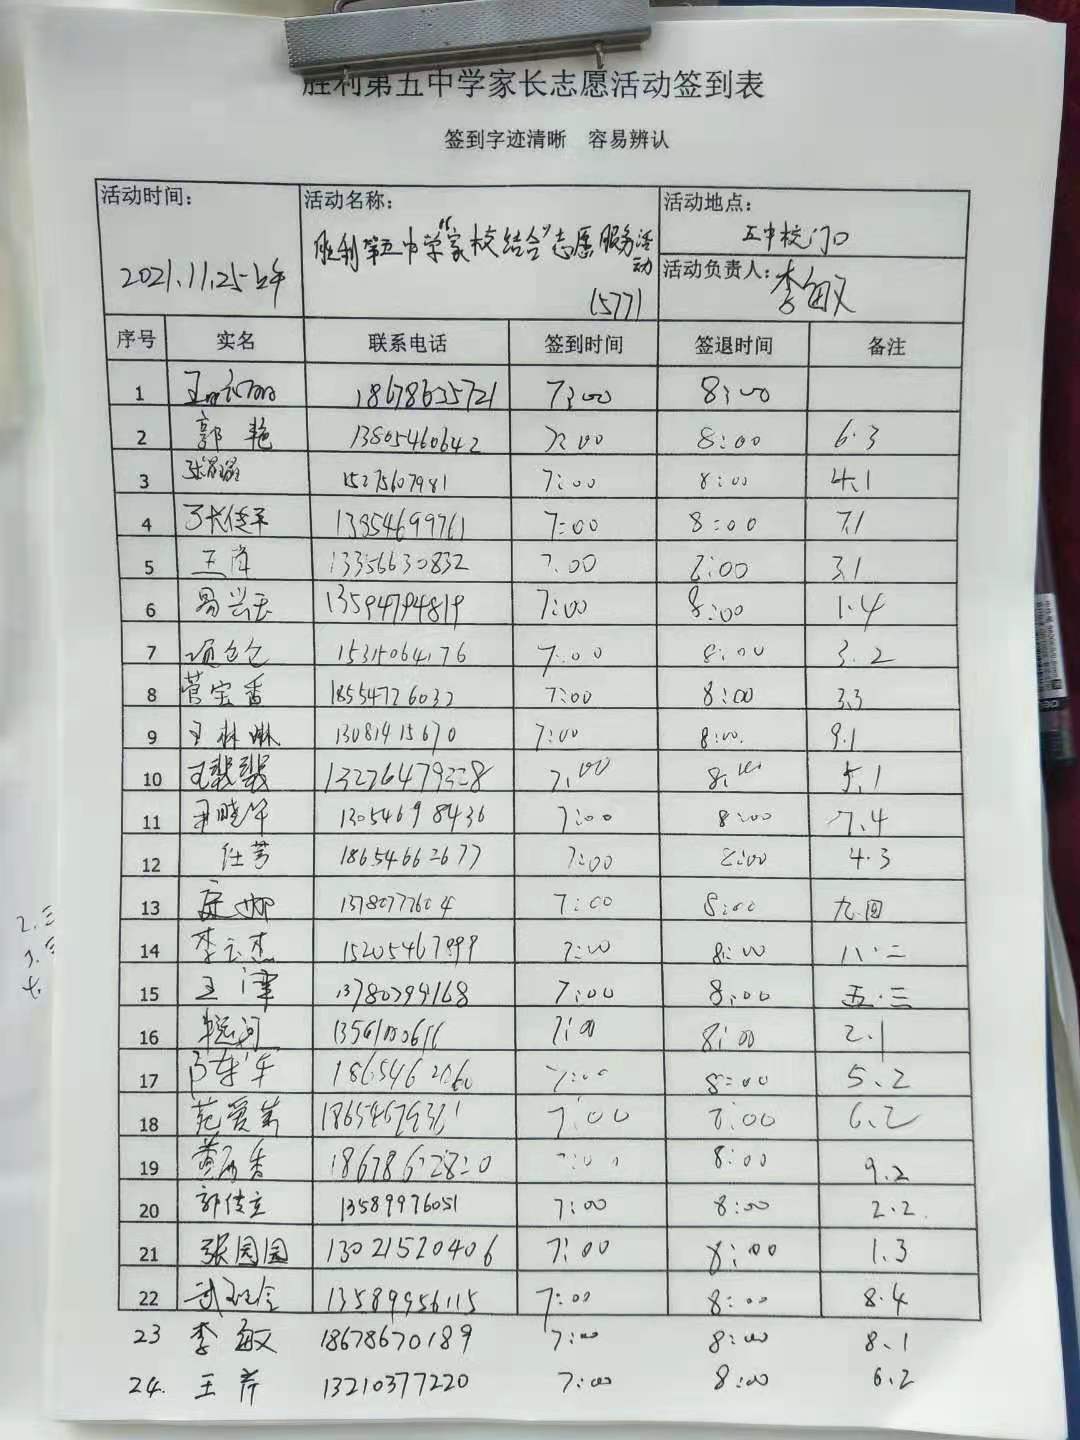 胜利第五中学家长志愿活动签到表
签到字迹清晰 容易辨认
活动时间： 活动名称： 活动地点：
2021.11.25上午 胜利第五中学“家校结合”志愿服务活动 五中校门口
(577) 活动负责人：李敏
序号 实名 联系电话 签到时间 签退时间 备注
1 18678635721 7:00 8:00
2 郭艳 13805460642 7:00 8:00 6.3
3 15275607981 7:00 8:00 4.1
4 张传军 13854699761 7:00 8:00 7.1
5 王岸 13356630832 7:00 8:00 3.1
6 13594794819 7:00 8:00 1.4
7 7:00 8:00 3.2
8 菅宝香 18554726032 7:00 8:00 3.3
9 王林琳 13081415670 7:00 8:00 9.1
10 13276479328 7:00 8:00 5.1
11 13054698436 7:00 8:00 7.4
12 任芳 18654662677 7:00 8:00 4.3
13 13780777604 7:00 8:00 九.四
14 李云杰 15205467899 7:00 8:00 八.二
15 王津 13780794168 7:00 8:00 五.三
16 7:00 8:00 2.1
17 陈军 7:00 8:00 5.2
18 范爱英 7:00 8:00 6.2
19 7:00 8:00 9.2
20 郭传立 13589976051 7:00 8:00 2.2
21 张园园 13021520406 7:00 8:00 1.3
22 13589956115 7:00 8:00 8.4
23 李敏 18678670189 7:00 8:00 8.1
24. 王芹 13210377220 7:00 8:00 6.2